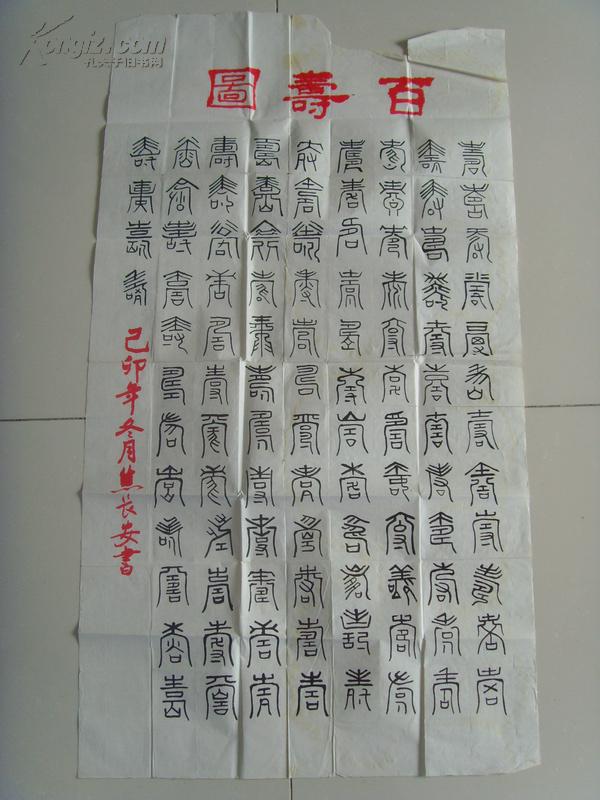 百壽圖
壽壽壽壽壽壽壽壽壽壽壽壽
壽壽壽壽壽壽壽壽壽壽壽壽
壽壽壽壽壽壽壽壽壽壽壽壽
壽壽壽壽壽壽壽壽壽壽壽壽
壽壽壽壽壽壽壽壽壽壽壽壽
壽壽壽壽壽壽壽壽壽壽壽壽
壽壽壽壽壽壽壽壽壽壽壽壽
壽壽壽壽壽壽壽壽壽壽壽壽
壽壽壽壽
己卯年冬月焦长安書
Kongfz.com
孔夫子旧书网